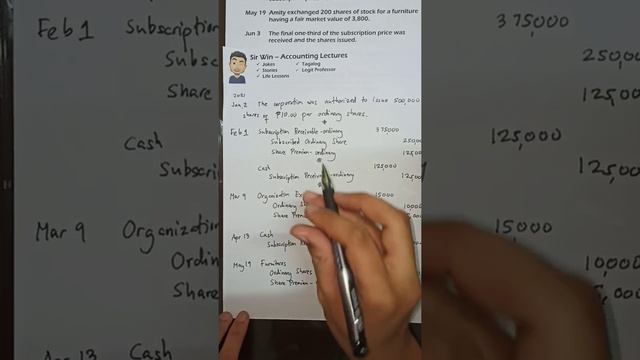 May 19 Amity exchanged 200 shares of stock for a furniture
having a fair market value of 3,800.
Jun 3 The final one-third of the subscription price was
received and the shares issued.
Sir Win – Accounting Lectures
✓ Jokes ✓ Tagalog
✓ Stories ✓ Legit Professor
✓ Life Lessons
2021
Jan. 2 The corporation was authorized to issue 500,000
shares of ₱10.00 par ordinary shares.
Feb 1 Subscription Receivable-ordinary 375000
Subscribed Ordinary Share 250,00
Share Premium-ordinary 125,00
Cash 125000
Subscription Receiv -ordinary 125,00
Mar 9 Organization Ex 15000
Ordinary S 10,00
Share Premi
Apr. 13 Cash
Subscription
May 19 Furnitures
Ordinary Shares
Share Premium -
Feb 1 Subscription
Subs
Share
Cash
Subscrip
Mar 9 Organiz
Ordin
Share
Apr 13 Cash
375000
250,00
125,00
125000
125,00
15000
10,000
5,000